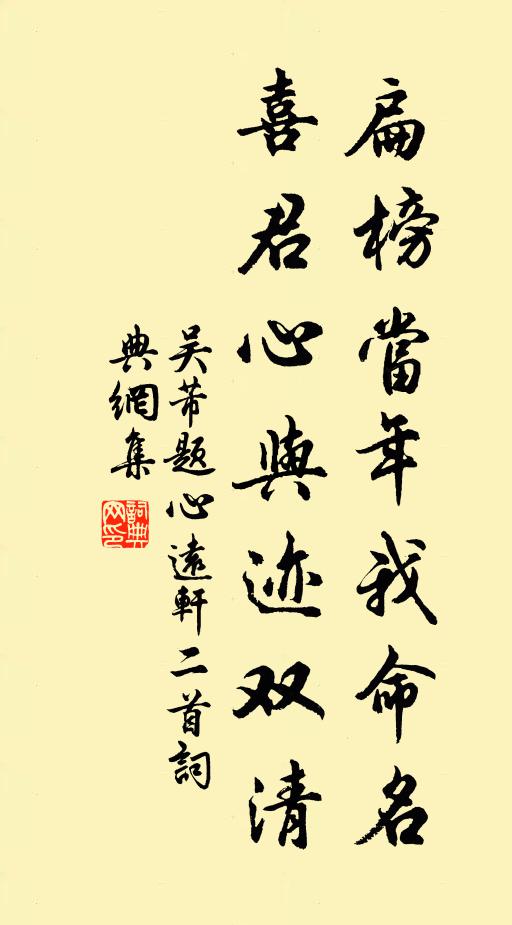 扁榜當年我命名
喜君心與迹双清
吴芾題心遠軒二首詞
典網集
詞典
网印